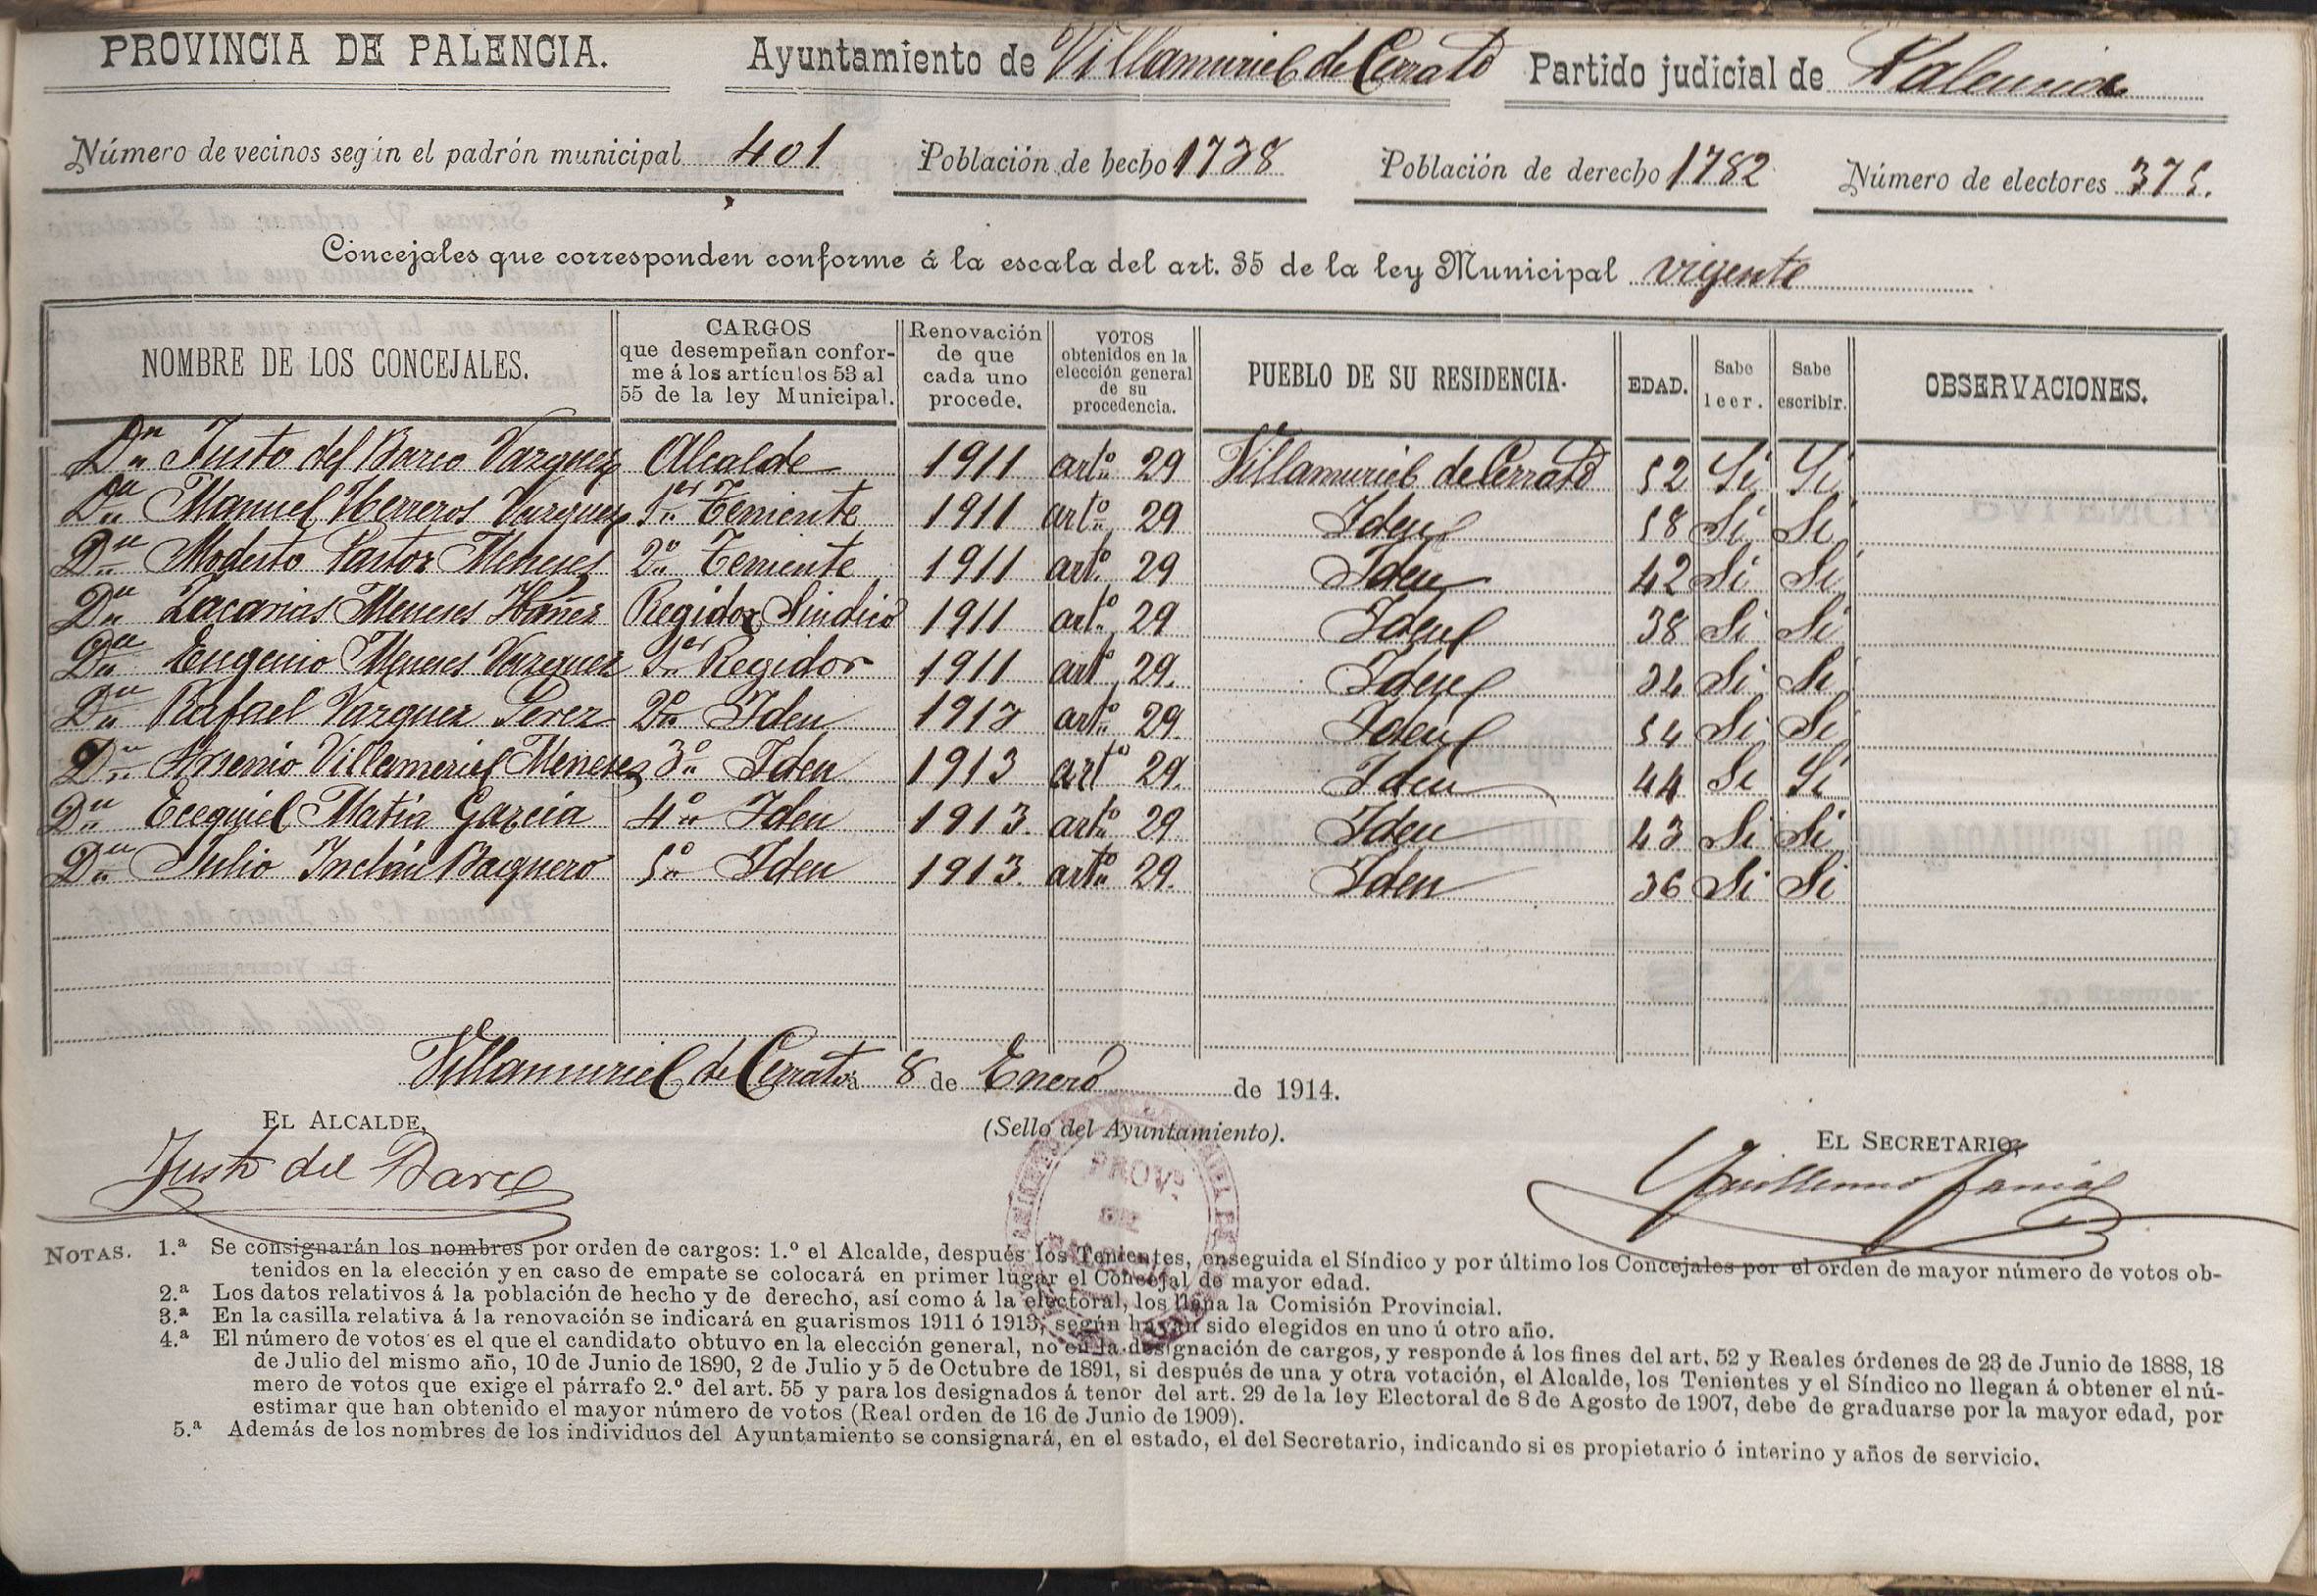 PROVINCIA DE PALENCIA. Ayuntamiento de Villamuriel de Cerrato Partido judicial de Palencia
Número de vecinos según el padrón municipal 401 Población de hecho 1738 Población de derecho 1782 Número de electores 375.
Concejales que corresponden conforme á la escala del art. 35 de la ley Municipal vigente
NOMBRE DE LOS CONCEJALES.
CARGOS
que desempeñan confor-
me á los artículos 53 al
55 de la ley Municipal.
Renovación
de que
cada uno
procede.
VOTOS
obtenidos en la
elección general
de su
procedencia.
PUEBLO DE SU RESIDENCIA.
EDAD.
Sabe
leer.
Sabe
escribir.
OBSERVACIONES.
Dn Justo del Barco Vazquez Alcalde 1911 arto 29 Villamuriel de Cerrato 52 Si Si
Dn Manuel Herreros Vazquez 1er Teniente 1911 arto 29 Iden 58 Si Si
Dn Modesto Pastor Meneses 2o Teniente 1911 arto 29 Iden 42 Si Si
Dn Zacarias Meneses Ibañez Regidor Sindico 1911 arto 29 Iden 38 Si Si
Dn Eugenio Meneses Vazquez 1er Regidor 1911 arto 29. Iden 34 Si Si
Dn Rafael Vazquez Perez 2o Iden 1913 arto 29. Iden 54 Si Si
Dn Arsenio Villameriel Meneses 3o Iden 1913 arto 29. Iden 44 Si Si
Dn Ecequiel Matia Garcia 4o Iden 1913. arto 29 Iden 43 Si Si
Dn Julio Inclán Baquero 5o Iden 1913. arto 29. Iden 36 Si Si
Villamuriel de Cerrato á 8 de Enero de 1914.
EL ALCALDE,
(Sello del Ayuntamiento).
EL SECRETARIO,
Justo del Barco
PROVª
DE
Guillermo Garcia
NOTAS. 1.ª Se consignarán los nombres por orden de cargos: 1.º el Alcalde, después los Tenientes, enseguida el Síndico y por último los Concejales por el orden de mayor número de votos ob-
tenidos en la elección y en caso de empate se colocará en primer lugar el Concejal de mayor edad.
2.ª Los datos relativos á la población de hecho y de derecho, así como á la electoral, los llena la Comisión Provincial.
3.ª En la casilla relativa á la renovación se indicará en guarismos 1911 ó 1913, según hayan sido elegidos en uno ú otro año.
4.ª El número de votos es el que el candidato obtuvo en la elección general, no en la designación de cargos, y responde á los fines del art. 52 y Reales órdenes de 23 de Junio de 1888, 18
de Julio del mismo año, 10 de Junio de 1890, 2 de Julio y 5 de Octubre de 1891, si después de una y otra votación, el Alcalde, los Tenientes y el Síndico no llegan á obtener el nú-
mero de votos que exige el párrafo 2.º del art. 55 y para los designados á tenor del art. 29 de la ley Electoral de 8 de Agosto de 1907, debe de graduarse por la mayor edad, por
estimar que han obtenido el mayor número de votos (Real orden de 16 de Junio de 1909).
5.ª Además de los nombres de los individuos del Ayuntamiento se consignará, en el estado, el del Secretario, indicando si es propietario ó interino y años de servicio.